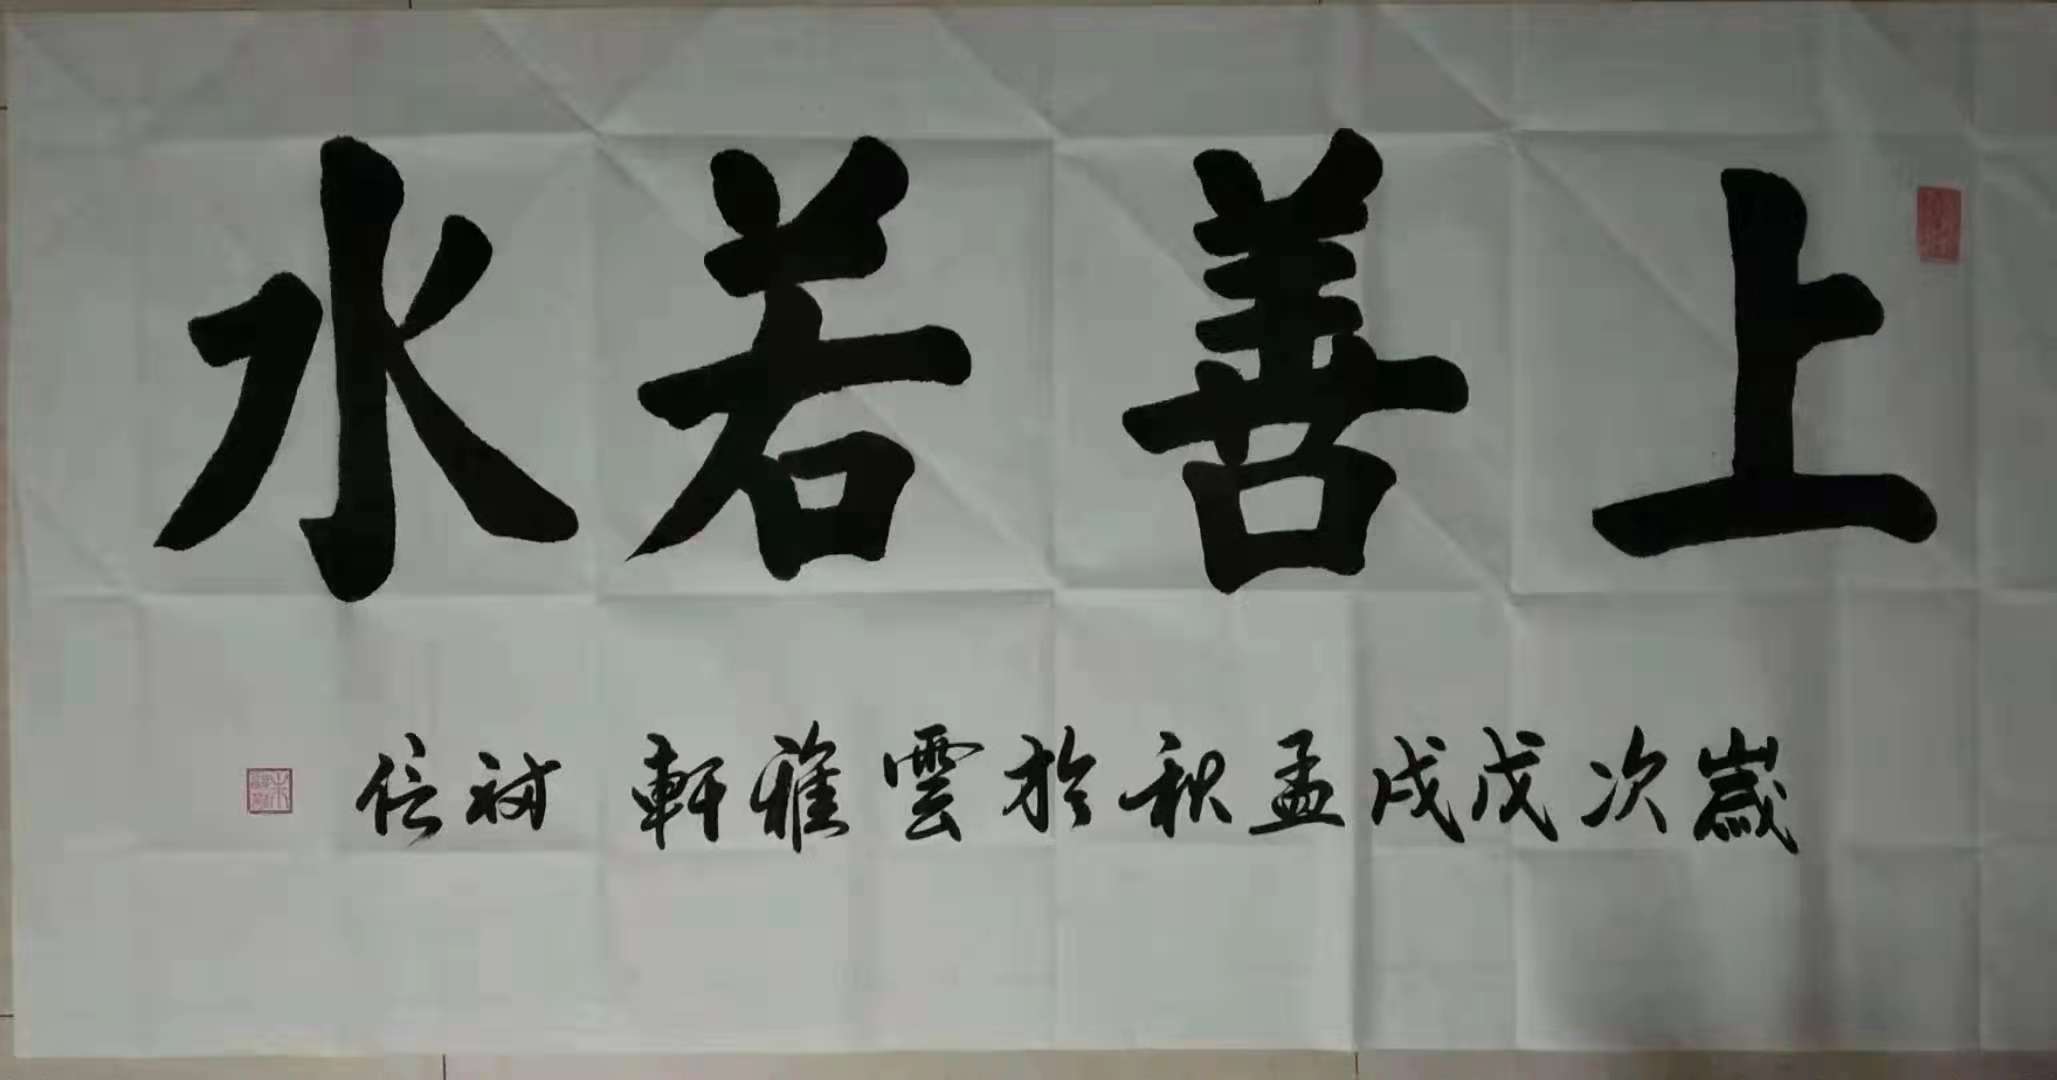 上善若水
歲次戊戌孟秋於雲雅軒